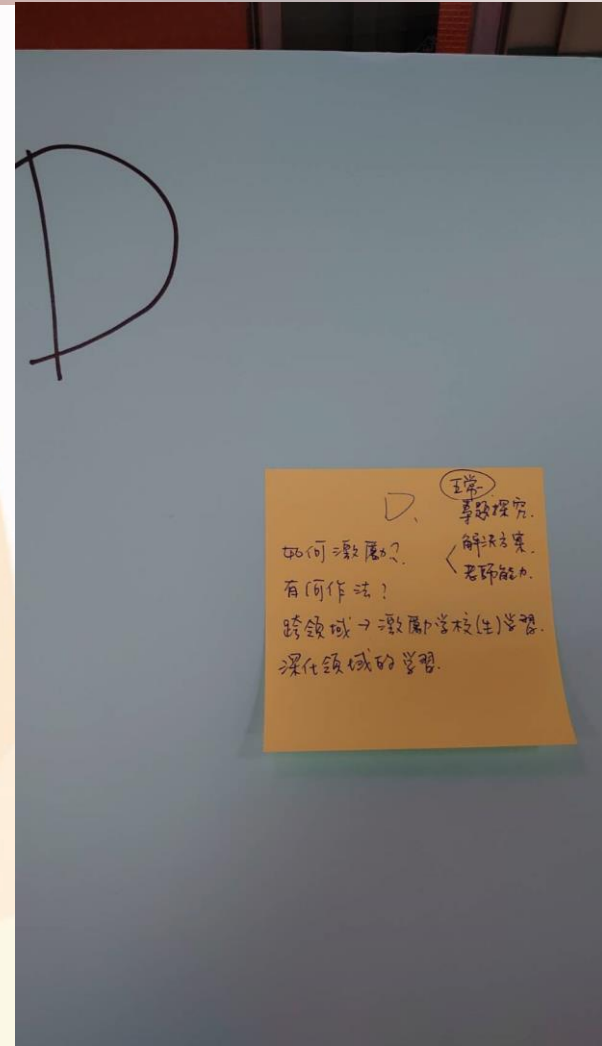 D
D.
正常
專題探究.
解決方案.
老師能力.
如何激勵?
有何作法?
跨領域→激勵学校(生)学習.
深化領域的学習.